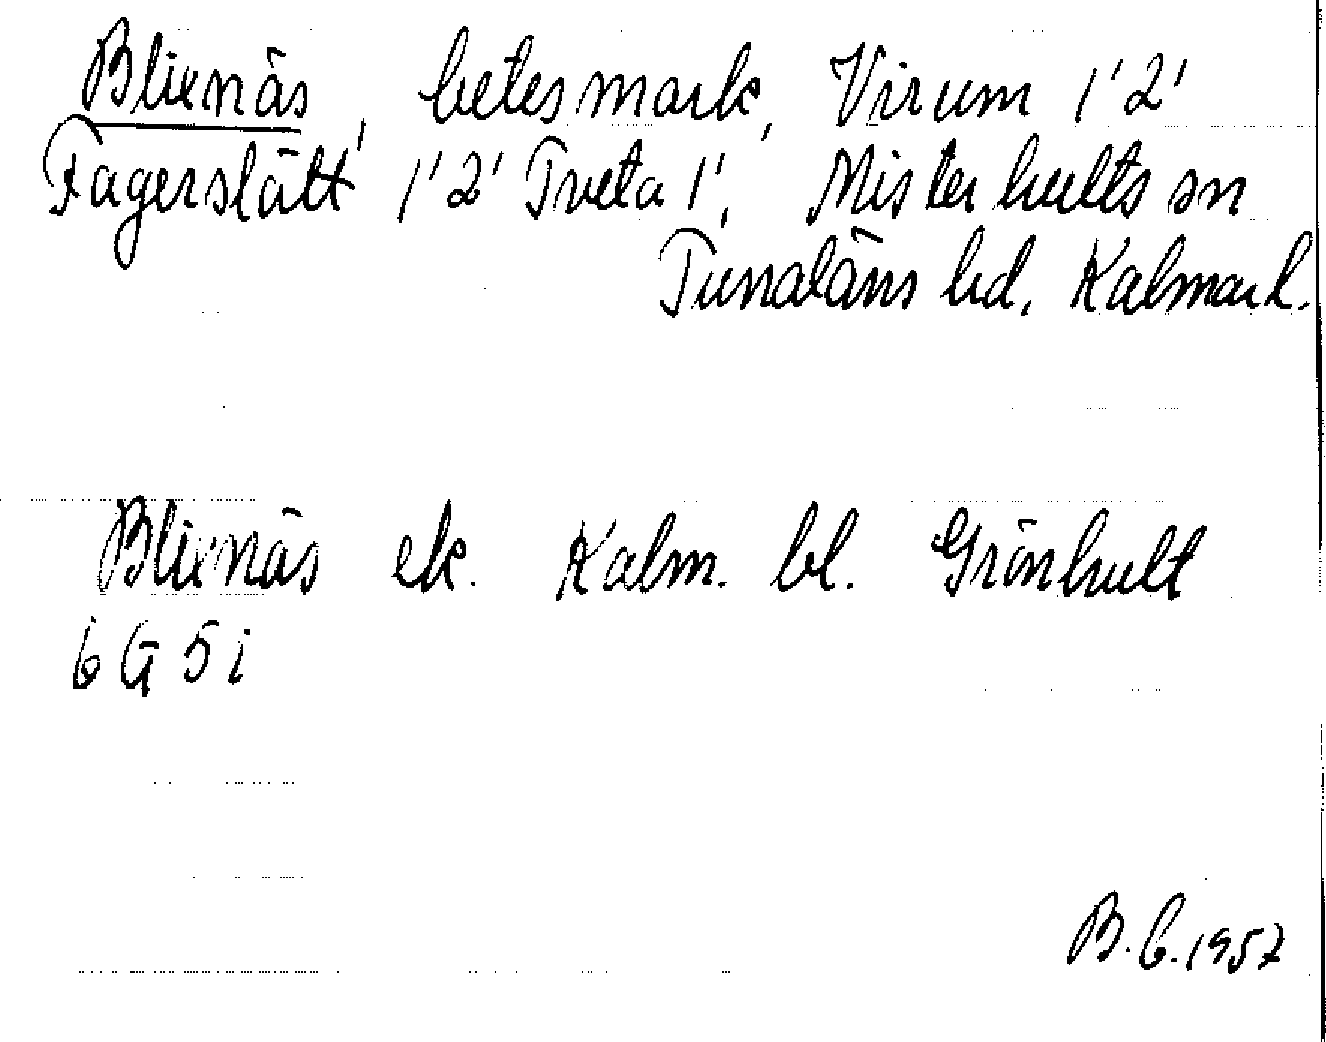 Blixnäs, betesmark, Virum 1'2'
Fagerslätt 1'2' Tveta 1', Misterhults sn
Tunaläns hd, Kalmar l.
Blixnäs ek. Kalm. bl. Grönhult
6 G 5 i
B.C. 1957